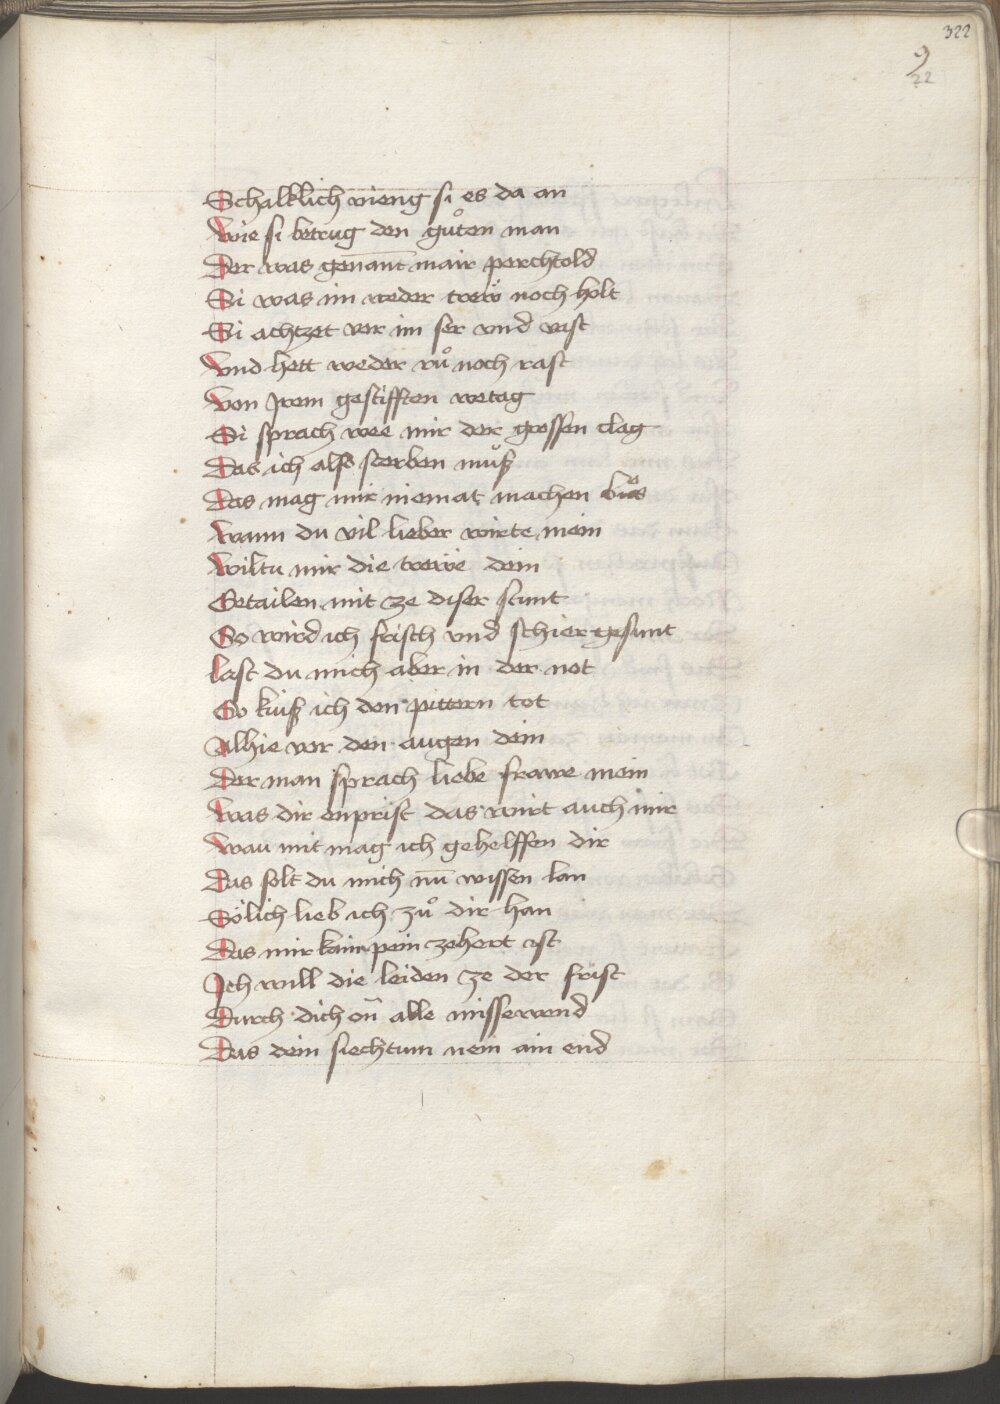 322
9
22
Schalklich vieng si es da an
Wie si betrug den guͦten man
Der was genant mair perchtold
Si was im weder trew noch holt
Si achtzet vor im ser vnd vast
Vnd hett weder ruͦ noch rast
Von Irem gestifften wetag
Si sprach wee mir der grossen clag
Das ich also sterben muͦß
Das mag mir niemat machen buͦs
Wann du vil lieber wirte mein
Wiltu mir die trewe dein
Getailen mit ze diser stunt
So wird ich frisch vnd schier gesunt
Last du mich aber in der not
So kuiß ich den pittern tot
Alhie vor den augen dein
Der man sprach liebe frawe mein
Was dir enprist das wirt auch mir
Wau mit mag ich gehelffen dir
Das solt du mich nū wissen lan
Sölich lieb ich zuͦ dir han
Das mir kain pein zehert ist
Ich will die leiden ze der frist
Durch dich on̄ alle missewend
Das dein siechtum nem ain end